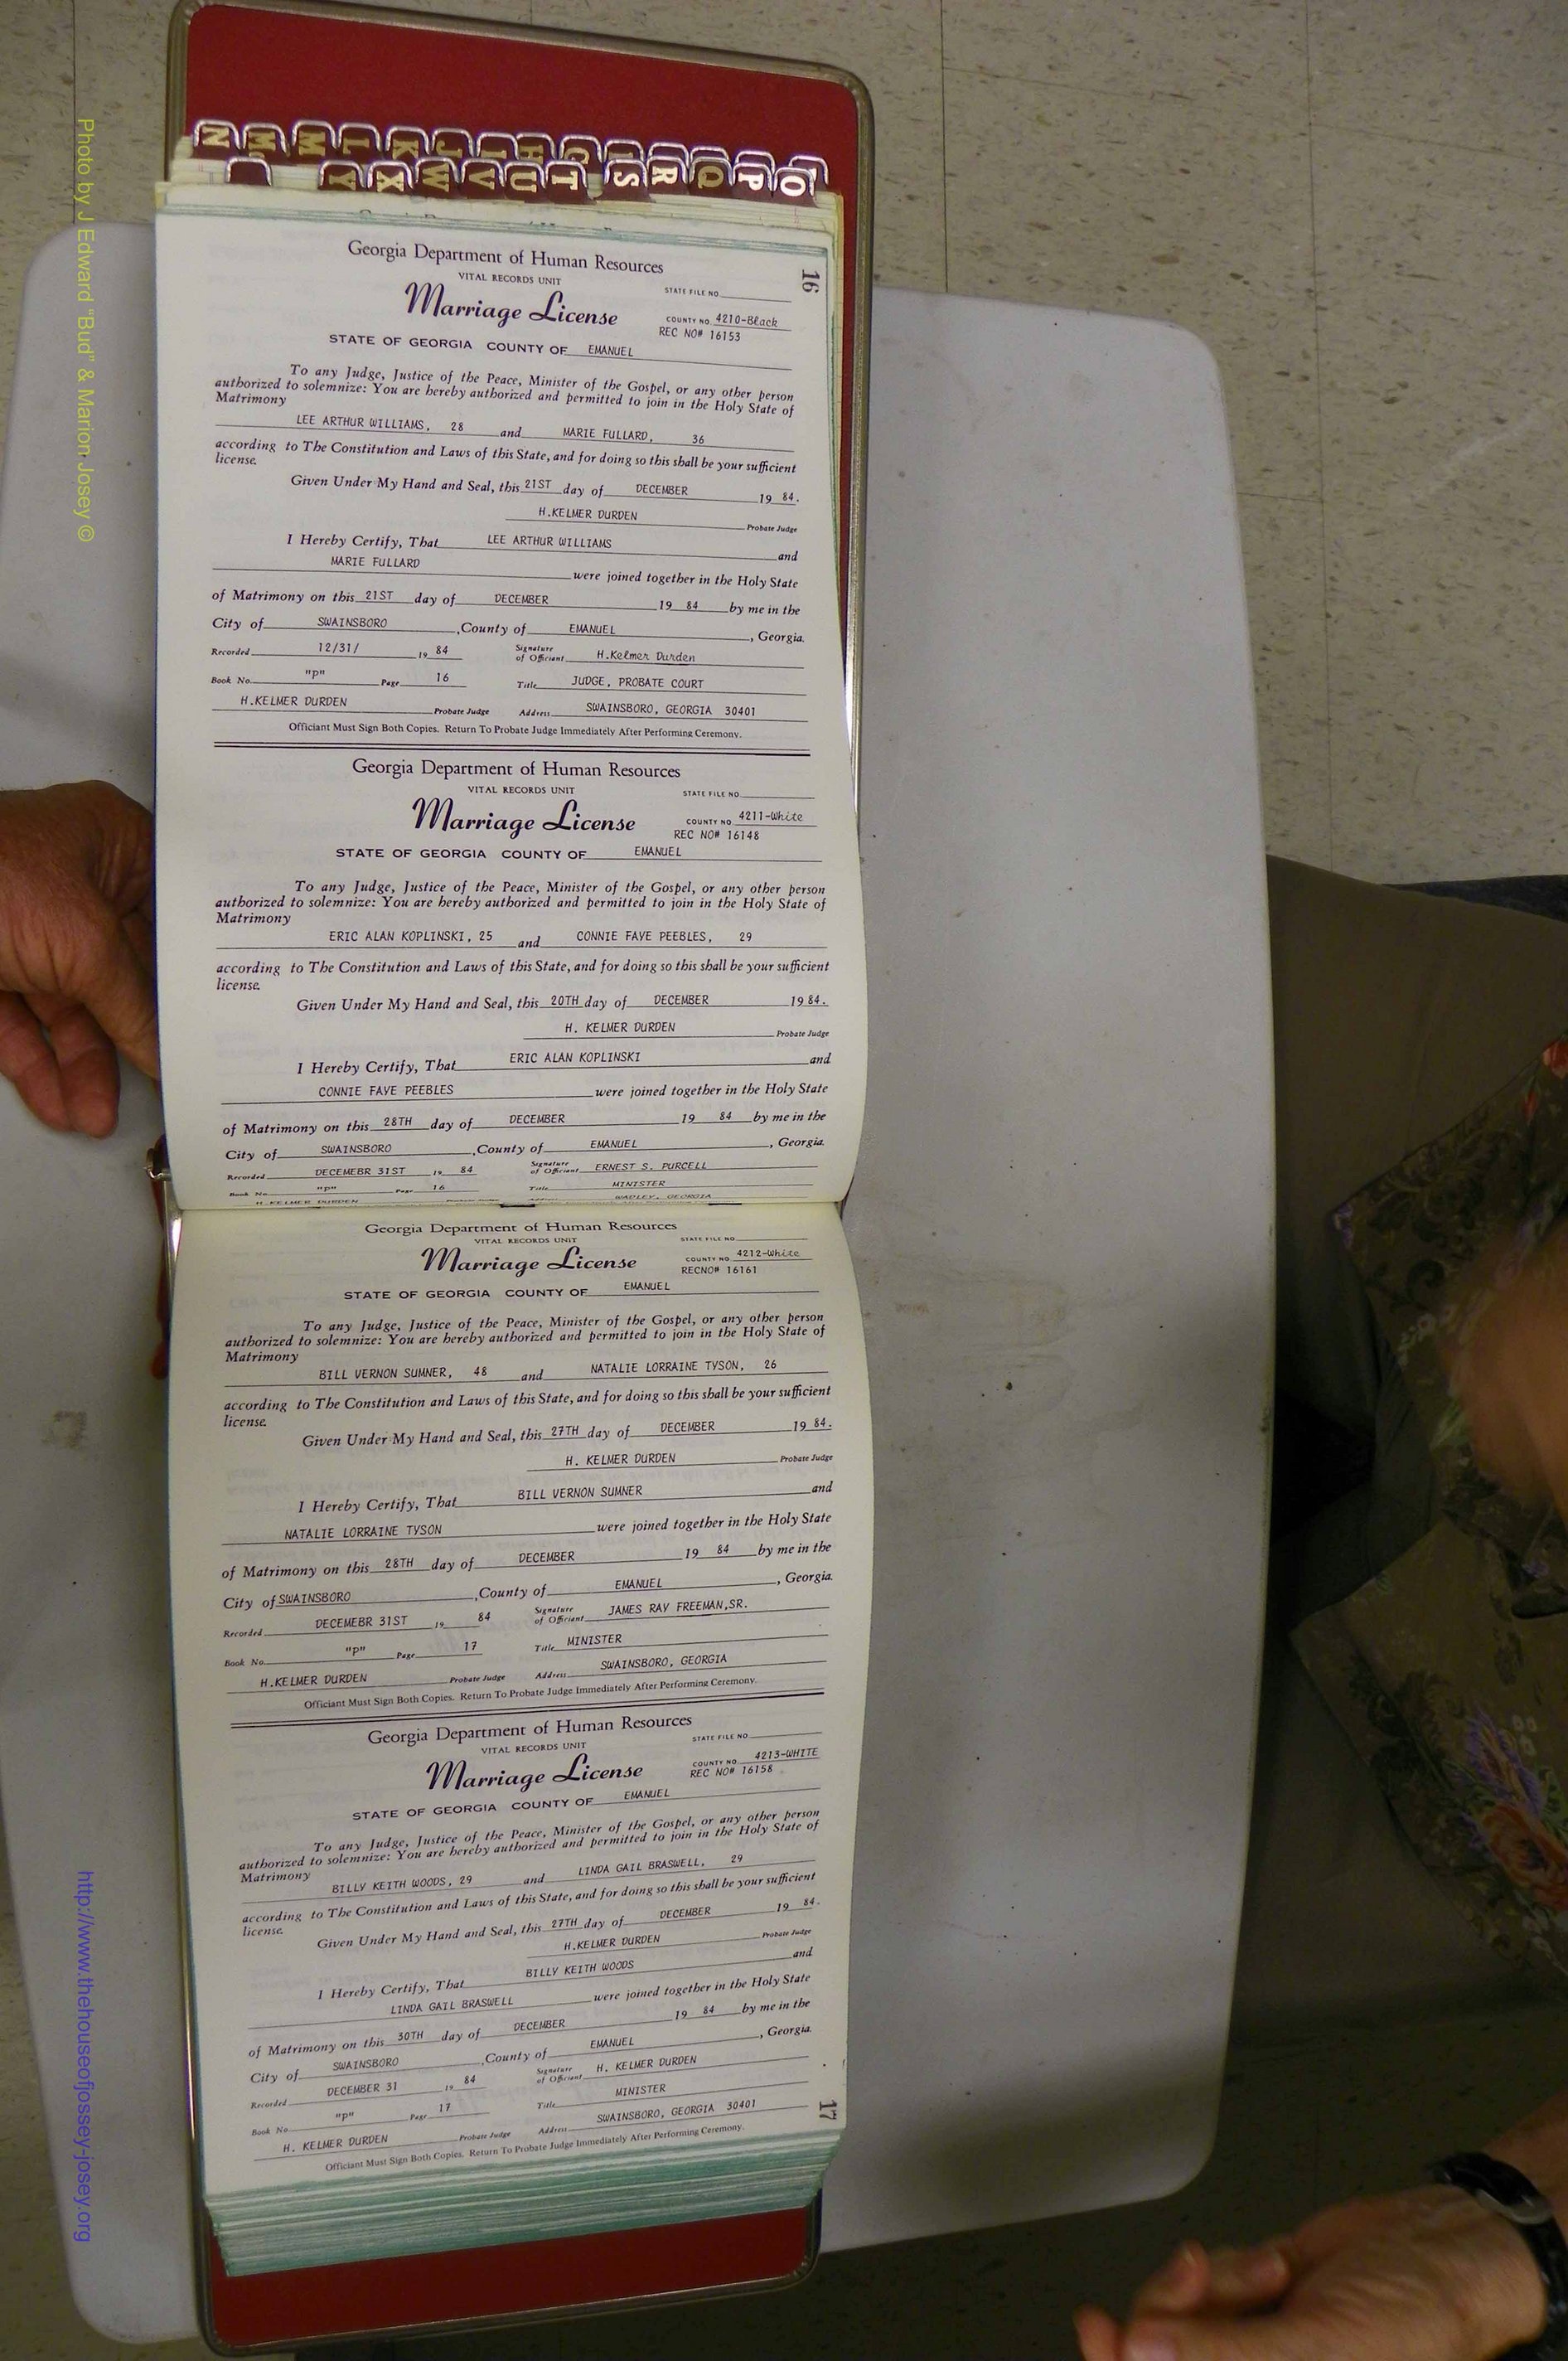 N M M L K J I H G R Q P O
Y X W V U T S
16
Georgia Department of Human Resources
VITAL RECORDS UNIT
STATE FILE NO.
Marriage License
COUNTY NO. 4210-Black
REC NO# 16153
STATE OF GEORGIA COUNTY OF EMANUEL
To any Judge, Justice of the Peace, Minister of the Gospel, or any other person
authorized to solemnize: You are hereby authorized and permitted to join in the Holy State of
Matrimony
LEE ARTHUR WILLIAMS, 28 and MARIE FULLARD, 36
according to The Constitution and Laws of this State, and for doing so this shall be your sufficient
license.
Given Under My Hand and Seal, this 21ST day of DECEMBER 19 84.
H.KELMER DURDEN
Probate Judge
I Hereby Certify, That LEE ARTHUR WILLIAMS and
MARIE FULLARD were joined together in the Holy State
of Matrimony on this 21ST day of DECEMBER 19 84 by me in the
City of SWAINSBORO ,County of EMANUEL , Georgia.
Recorded 12/31/ 19 84 Signature of Officiant H.Kelmer Durden
Book No. "p" Page 16 Title JUDGE, PROBATE COURT
H.KELMER DURDEN Probate Judge Address SWAINSBORO, GEORGIA 30401
Officiant Must Sign Both Copies. Return To Probate Judge Immediately After Performing Ceremony.
Georgia Department of Human Resources
VITAL RECORDS UNIT
STATE FILE NO.
Marriage License
COUNTY NO. 4211-White
REC NO# 16148
STATE OF GEORGIA COUNTY OF EMANUEL
To any Judge, Justice of the Peace, Minister of the Gospel, or any other person
authorized to solemnize: You are hereby authorized and permitted to join in the Holy State of
Matrimony
ERIC ALAN KOPLINSKI, 25 and CONNIE FAYE PEEBLES, 29
according to The Constitution and Laws of this State, and for doing so this shall be your sufficient
license.
Given Under My Hand and Seal, this 20TH day of DECEMBER 19 84.
H. KELMER DURDEN
Probate Judge
I Hereby Certify, That ERIC ALAN KOPLINSKI and
CONNIE FAYE PEEBLES were joined together in the Holy State
of Matrimony on this 28TH day of DECEMBER 19 84 by me in the
City of SWAINSBORO ,County of EMANUEL , Georgia.
Recorded DECEMEBR 31ST 19 84 Signature of Officiant ERNEST S. PURCELL
Book No. "p" Page 16 Title MINISTER
H KELMER DURDEN WADLEY, GEORGIA
Georgia Department of Human Resources
VITAL RECORDS UNIT
STATE FILE NO.
Marriage License
COUNTY NO. 4212-White
RECNO# 16161
STATE OF GEORGIA COUNTY OF EMANUEL
To any Judge, Justice of the Peace, Minister of the Gospel, or any other person
authorized to solemnize: You are hereby authorized and permitted to join in the Holy State of
Matrimony
BILL VERNON SUMNER, 48 and NATALIE LORRAINE TYSON, 26
according to The Constitution and Laws of this State, and for doing so this shall be your sufficient
license.
Given Under My Hand and Seal, this 27TH day of DECEMBER 19 84.
H. KELMER DURDEN
Probate Judge
I Hereby Certify, That BILL VERNON SUMNER and
NATALIE LORRAINE TYSON were joined together in the Holy State
of Matrimony on this 28TH day of DECEMBER 19 84 by me in the
City of SWAINSBORO ,County of EMANUEL , Georgia.
Recorded DECEMEBR 31ST 19 84 Signature of Officiant JAMES RAY FREEMAN,SR.
Book No. "p" Page 17 Title MINISTER
H.KELMER DURDEN Probate Judge Address SWAINSBORO, GEORGIA
Officiant Must Sign Both Copies. Return To Probate Judge Immediately After Performing Ceremony.
Georgia Department of Human Resources
VITAL RECORDS UNIT
STATE FILE NO.
Marriage License
COUNTY NO. 4213-WHITE
REC NO# 16158
STATE OF GEORGIA COUNTY OF EMANUEL
To any Judge, Justice of the Peace, Minister of the Gospel, or any other person
authorized to solemnize: You are hereby authorized and permitted to join in the Holy State of
Matrimony
BILLY KEITH WOODS, 29 and LINDA GAIL BRASWELL, 29
according to The Constitution and Laws of this State, and for doing so this shall be your sufficient
license.
Given Under My Hand and Seal, this 27TH day of DECEMBER 19 84.
H.KELMER DURDEN
Probate Judge
I Hereby Certify, That BILLY KEITH WOODS and
LINDA GAIL BRASWELL were joined together in the Holy State
of Matrimony on this 30TH day of DECEMBER 19 84 by me in the
City of SWAINSBORO ,County of EMANUEL , Georgia.
Recorded DECEMBER 31 19 84 Signature of Officiant H. KELMER DURDEN
Book No. "p" Page 17 Title MINISTER
H. KELMER DURDEN Probate Judge Address SWAINSBORO, GEORGIA 30401
Officiant Must Sign Both Copies. Return To Probate Judge Immediately After Performing Ceremony.
17
Photo by J Edward "Bud" & Marion Josey ©
http://www.thehouseofjossey-josey.org